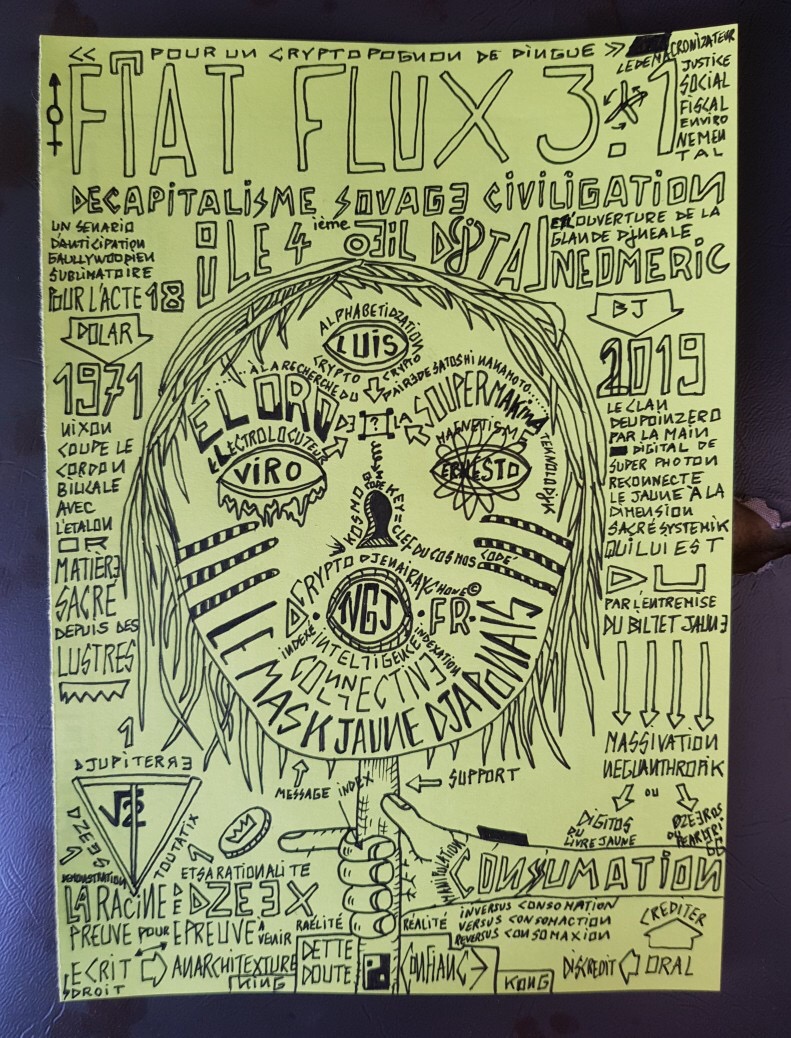 << POUR UN CRYPTOPOGNON DE DINGUE >>
FIAT FLUX 3.1
JUSTICE
SOCIAL
FISCAL
ENVIRO
NEMEN
TAL
DECAPITALISME SOVAGE CIVILIGATION
UN SENARIO
D'ANTICIPATION
GAULLYWOODIEN
SUBLIMATOIRE
POUR L'ACTE 18
LE 4 ième OEIL DJITAL
L'OUVERTURE DE LA
GLANDE DJINEALE
NEOMERIC
DOLAR
1971
NIXON
COUPE LE
CORDON
BILICALE
AVEC
L'ETALON
OR
MATIÈRE
SACRÉ
DEPUIS DES
LUSTRES
BJ
2019
LE CLAN
DEUPOINZERO
PAR LA MAIN
DIGITAL DE
SUPER PHOTON
RECONNECTE
LE JAUNE A LA
DIMENSION
SACRÉ SYSTEMIK
QUI LUI EST
DU
PAR L'ENTREMISE
DU BILLET JAUNE
MASSIVATION
NEGUANTHROPIK
OU
DIGITOS
DU
LIVRE JAUNE
ALPHABETIDZATION
LUIS
CRYPTO
CRYPTO
A LA RECHERCHE DU
PAIR3 DE SATOSHI NAKAMOTO....
EL ORO
DE
?
LA
SOUPERMAKINA
ELECTROLOCUTEUR
MAGNETISME
VIRO
ERNESTO
QR
CODE
KOSMO
KEY =
CLEF DU COSMOS
CODÉ
CRYPTO DJENAIRAY
NGJ
.FR.
INDEXÉ
INTELIGENCE
INDEXATION
CONNECTIVE
LE MASK JAUNE DJAPONAIS
MESSAGE INDEX
SUPPORT
1
DJUPITERRE
√2
DZEES
TOUTATIX
DEMONSTRATION
ET SA RATIONALITÉ
LA RACINE DE DZEEX
PREUVE POUR EPREUVE À VENIR
ECRIT
DROIT
ANARCHITEXTURE
KING
RAÉLITÉ
RÉALITÉ
DETTE
DOUTE
CONFIANCE
KONG
MANIPULATION
CONSUMATION
INVERSUS CONSOMATION
VERSUS CONSOMACTION
REVERSUS CONSOMAXION
CREDITER
DISCREDIT
ORAL